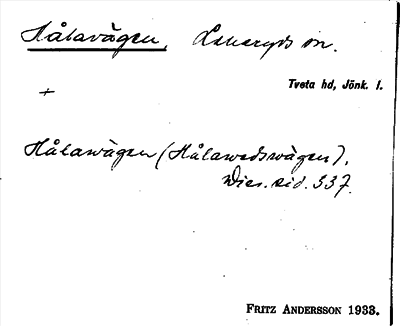 Hålavägen, Lekeryds sn.
Tveta hd, Jönk. l.
+
Hålawägen (Hålawedswägen),
Wies. sid. 337.
FRITZ ANDERSSON 1933.